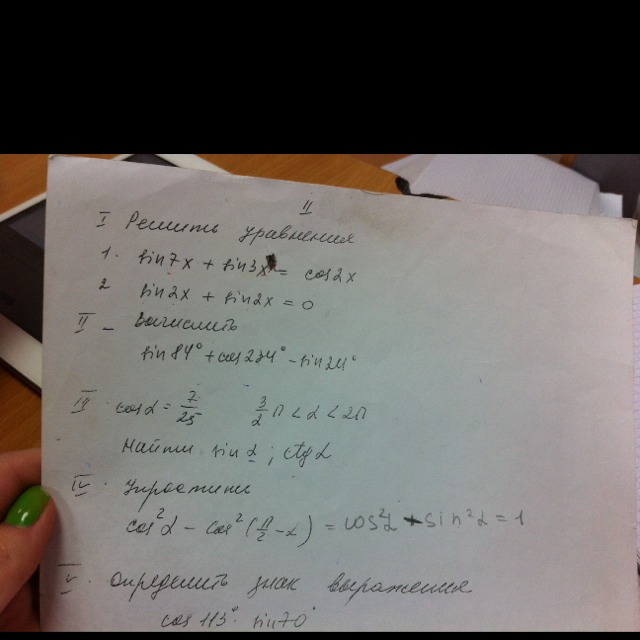 II
I Решить уравнения
1. sin7x + sin3x = cos2x
2 sin2x + sin2x = 0
II - Вычислить
sin84° + cos234° - sin24°
III cosα = 7/25 3/2 π < α < 2π
Найти sin α ; ctg α
IV. Упростить
cos²α - cos²(π/2 - α) = cos²α + sin²α = 1
V. Определить знак выражения
cos 113° · sin70°